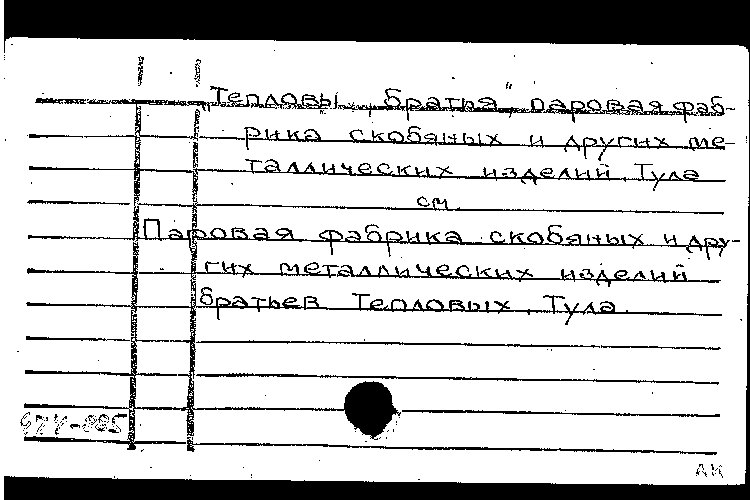 Тепловы „братья“, паровая фаб-
рика скобяных и других ме-
таллических изделий, Тула
см.
Паровая фабрика скобяных и дру-
гих металлических изделий
братьев Тепловых, Тула.
АК